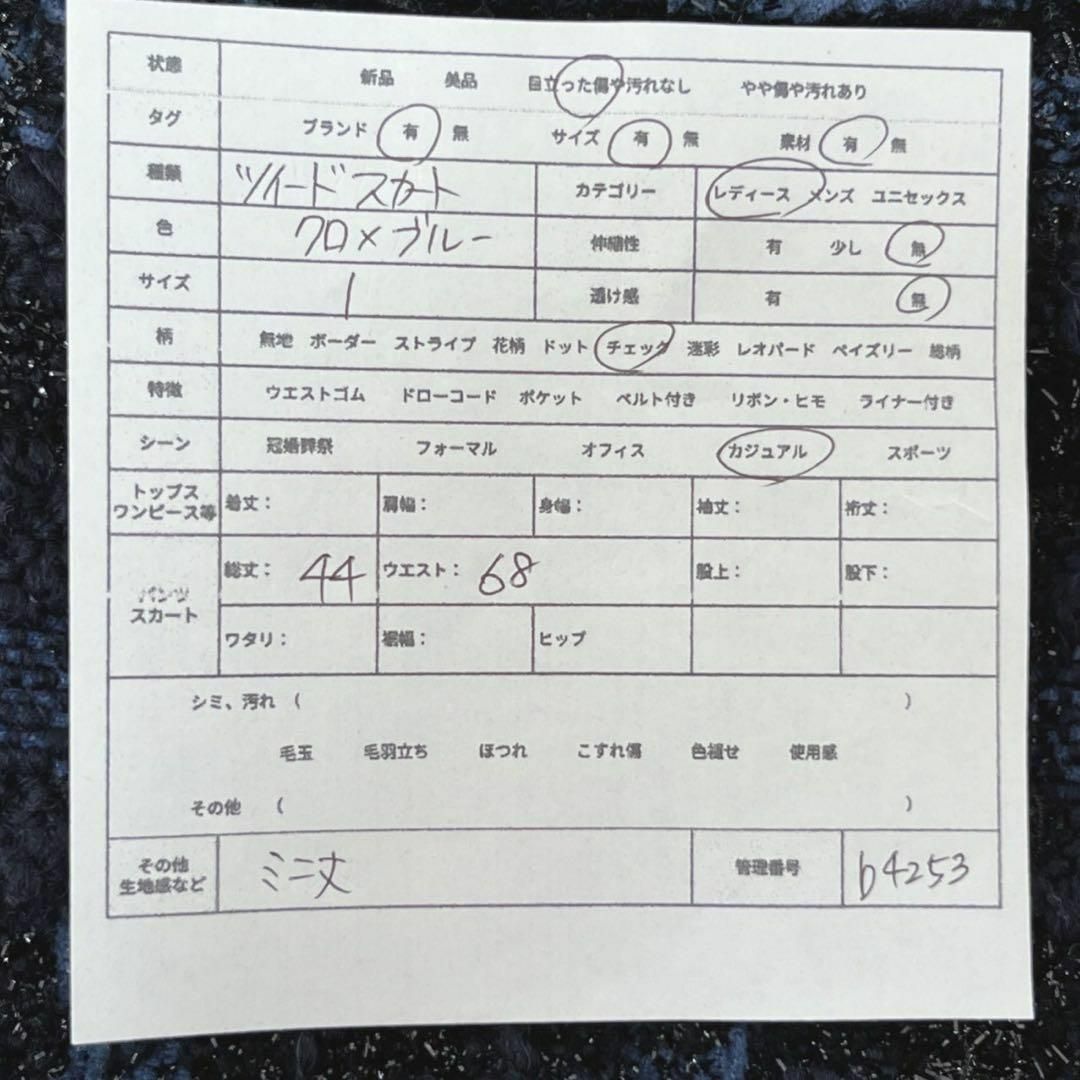 状態 新品 美品 目立った傷や汚れなし やや傷や汚れあり
タグ ブランド 有 無 サイズ 有 無 素材 有 無
種類 ツイードスカート カテゴリー レディース メンズ ユニセックス
色 クロ×ブルー 伸縮性 有 少し 無
サイズ 1 透け感 有 無
柄 無地 ボーダー ストライプ 花柄 ドット チェック 迷彩 レオパード ペイズリー 総柄
特徴 ウエストゴム ドローコード ポケット ベルト付き リボン・ヒモ ライナー付き
シーン 冠婚葬祭 フォーマル オフィス カジュアル スポーツ
トップス
ワンピース等 着丈： 肩幅： 身幅： 袖丈： 裄丈：
パンツ
スカート 総丈： 44 ウエスト： 68 股上： 股下：
ワタリ： 裾幅： ヒップ
シミ、汚れ （ ）
毛玉 毛羽立ち ほつれ こすれ傷 色褪せ 使用感
その他 （ ）
その他
生地感など ミニ丈 管理番号 b4253